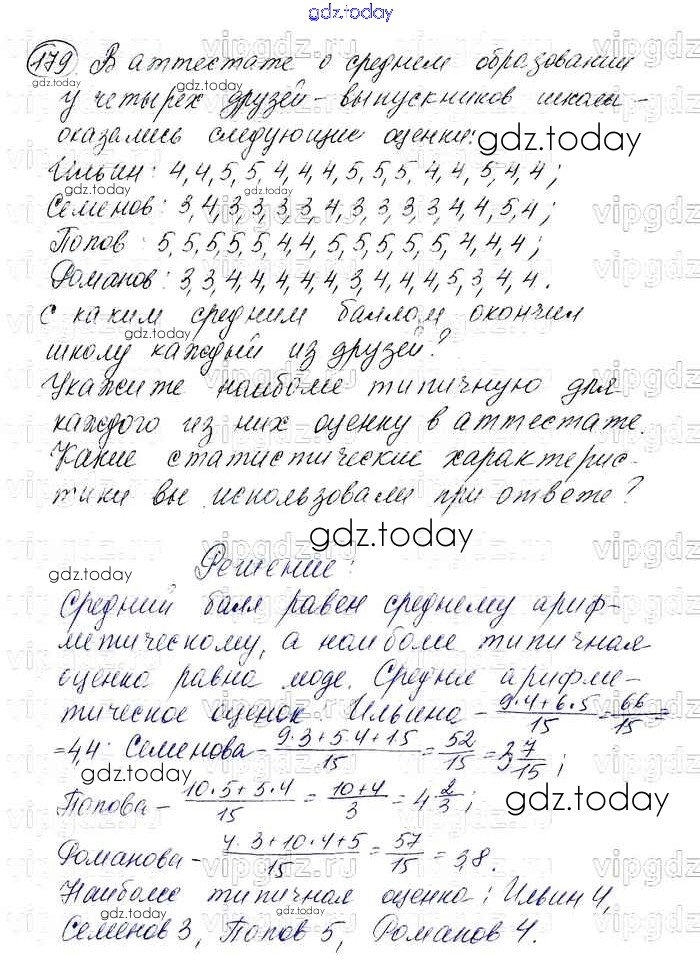 gdz.today
179 В аттестате о среднем образовании
у четырех друзей - выпускников школы -
оказались следующие оценки:
gdz.today
Ильин: 4,4,5,5,4,4,4,5,5,5,4,4,5,4,4;
gdz.today
Семенов: 3,4,3,3,3,3,4,3,3,3,3,4,4,5,4;
Попов: 5,5,5,5,5,4,4,5,5,5,5,5,4,4,4;
Романов: 3,3,4,4,4,4,4,3,4,4,4,5,3,4,4.
С каким средним баллом окончил
gdz.today
школу каждый из друзей?
Укажите наиболее типичную для
каждого из них оценку в аттестате.
Какие статистические характерис-
тики вы использовали при ответе?
gdz.today
Решение:
gdz.today
Средний балл равен среднему ариф-
метическому, а наиболее типичная
оценка равна моде. Средние арифме-
тическое оценок Ильина - 9·4+6·5/15 = 66/15 =
= 4,4; Семенова - 9·3+5·4+15/15 = 52/15 = 3 7/15;
gdz.today
Попова - 10·5+5·4/15 = 10+4/3 = 4 2/3;
Романова - 4·3+10·4+5/15 = 57/15 = 3,8.
Наиболее типичная оценка: Ильин 4,
gdz.today
Семенов 3, Попов 5, Романов 4.